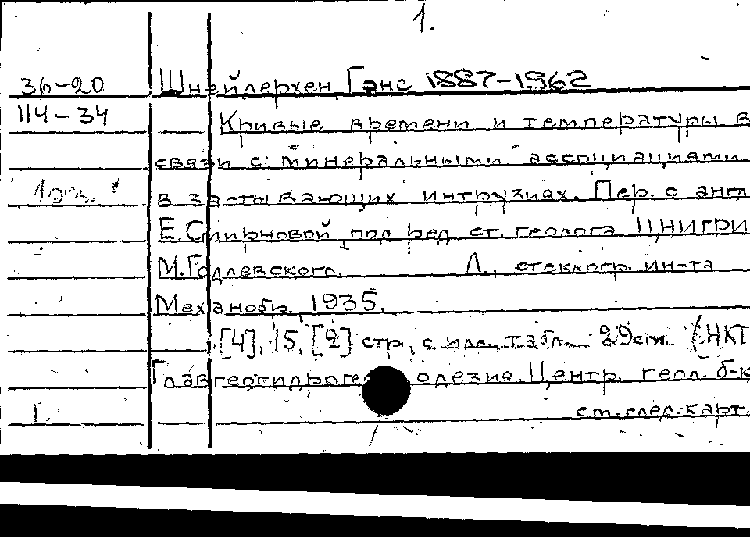 1.
36-20 Шнейдерхен, Ганс 1887-1962
114-34 Кривые времени и температуры в
связи с минеральными ассоциациями
в застывающих интрузиях. Пер. с англ
Е. Смирновой под ред. ст. геолога ЦНИГРИ
М. Годлевского. Л., стеклогр. ин-та
Механобр, 1935.
[4], 15, [2] стр., с илл. табл. 29см. (НКТ
Главгеогидроге одезия. Центр. геол. б-к
Г. см. след. карт.